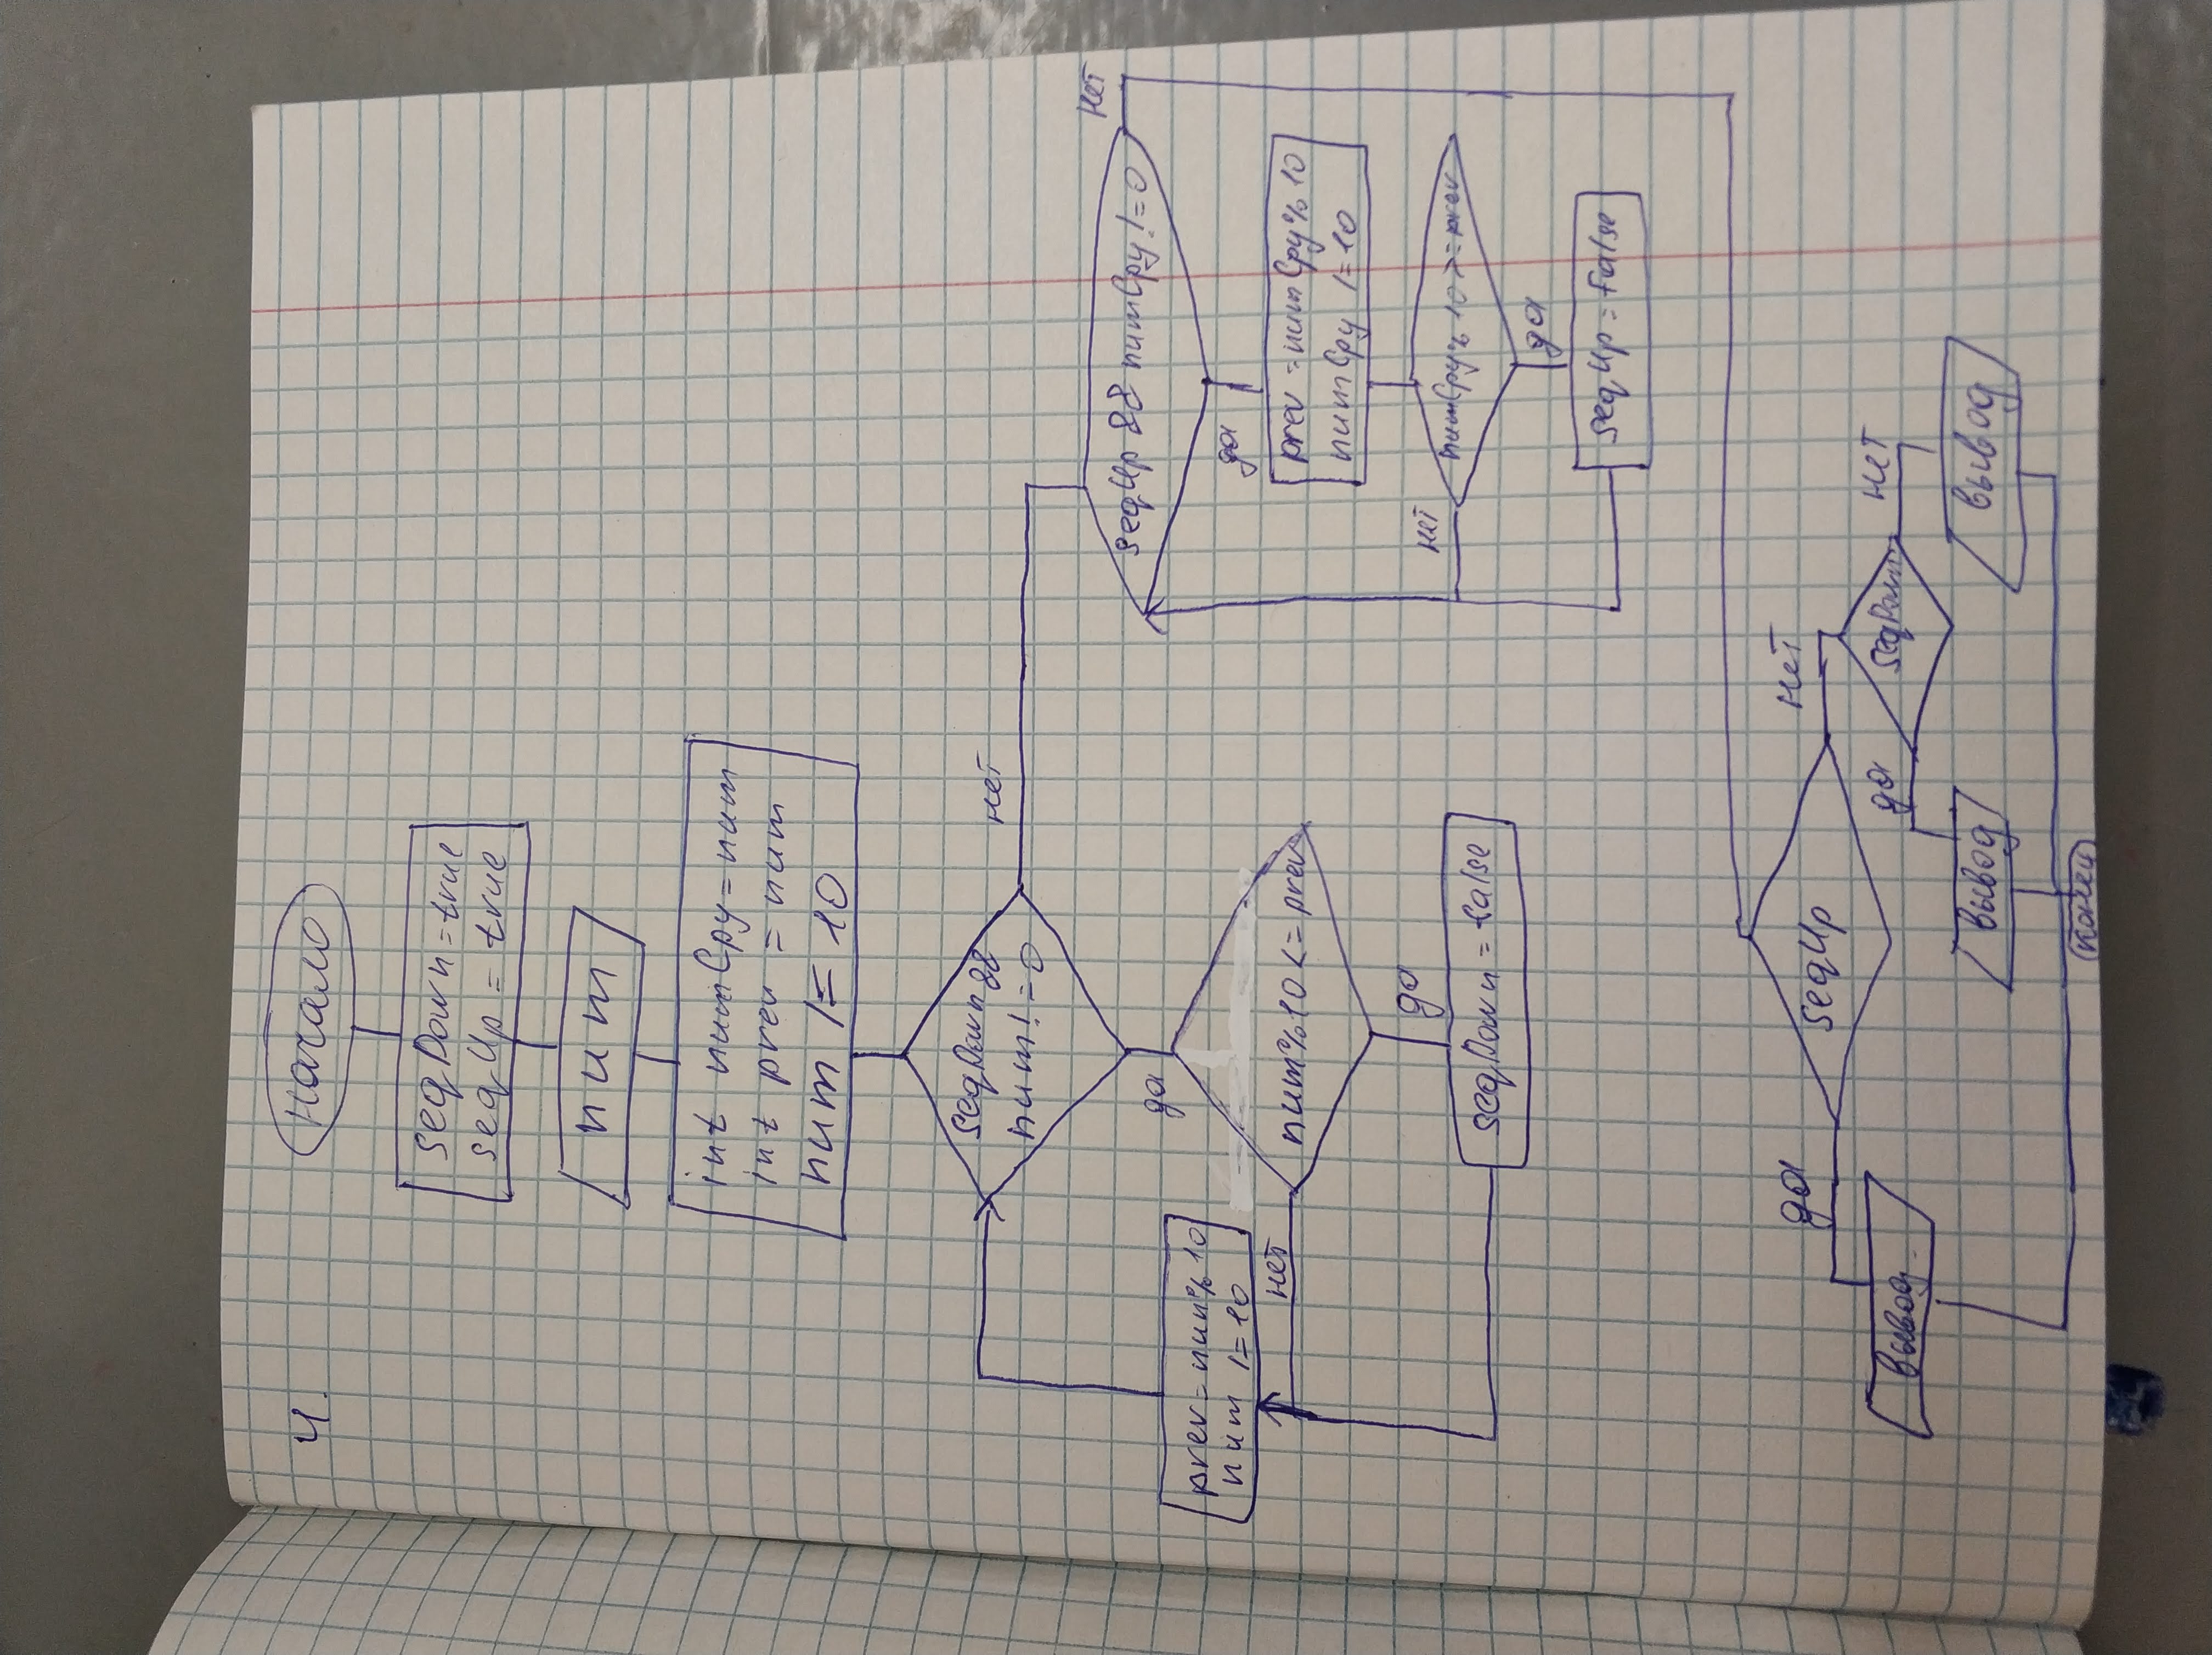 4.
начало
seqDown = true
seqUp = true
num
int numCpy = num
int prev = num
num /= 10
seqDown &&
num != 0
нет
да
prev = num % 10
num /= 10
нет
num % 10 <= prev
да
seqDown = false
seqUp && numCpy != 0
нет
да
prev = numCpy % 10
numCpy /= 10
нет
numCpy % 10 >= prev
да
seqUp = false
seqUp
да
нет
вывод
seqDown
да
нет
вывод
вывод
конец